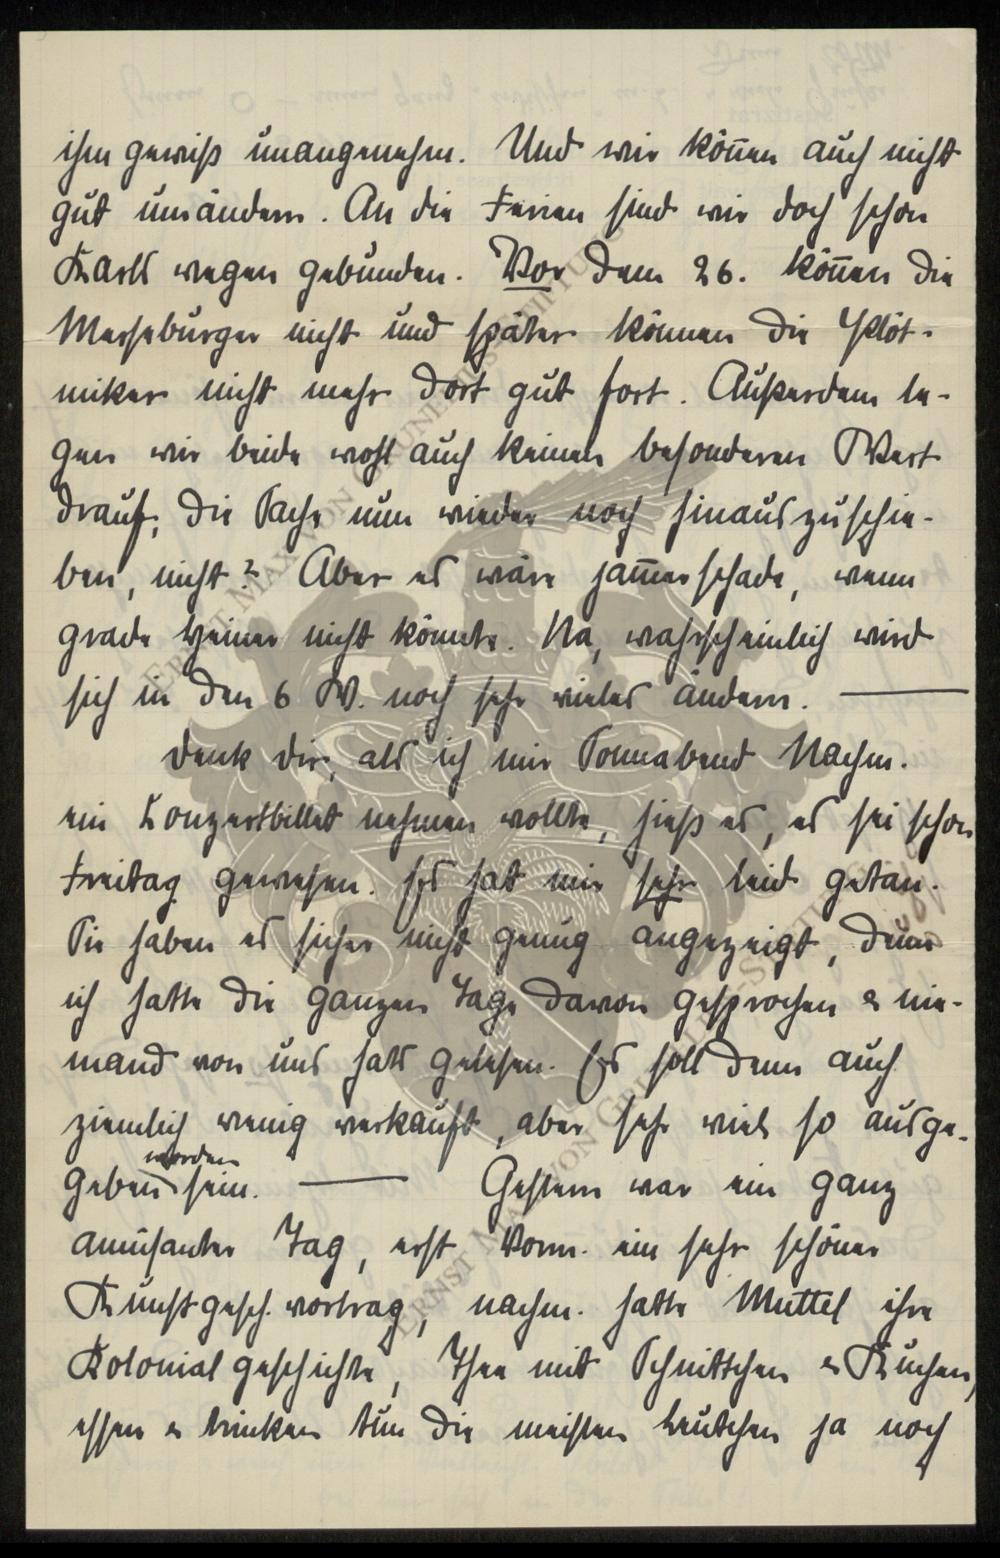 ihm gewiß unangenehm. Und wir können auch nicht
gut umändern. An die Ferien sind wir doch schon
Karls wegen gebunden. Vor dem 26. können die
Merseburger nicht und später können die Plöt-
niker nicht mehr dort gut fort. Außerdem le-
gen wir beide wohl auch keinen besonderen Wert
drauf, die Sache nun wieder noch hinauszuschie-
ben, nicht? Aber es wäre jammerschade, wenn
grade Heiner nicht könnte. Na, wahrscheinlich wird
sich in den 6 W. noch sehr vieles ändern. —
Denk dir, als ich mir Sonnabend Nachm.
ein Konzertbillet nehmen wollte, hieß es, es sei schon
Freitag gewesen. Es hat mir sehr leid getan.
Sie haben es sicher nicht genug angezeigt, denn
ich hatte die ganzen Tage davon gesprochen & nie-
mand von uns hats gelesen. Es soll denn auch
ziemlich wenig verkauft, aber sehr viel so ausge-
geben worden sein. — Gestern war ein ganz
amüsanter Tag, erst Vorm. ein sehr schöner
Kunstgesch. vortrag, nachm. hatte Muttel ihre
Kolonialgeschichte, Thee mit Schnittchen & Kuchen,
essen & trinken tun die meisten Leutchen ja noch